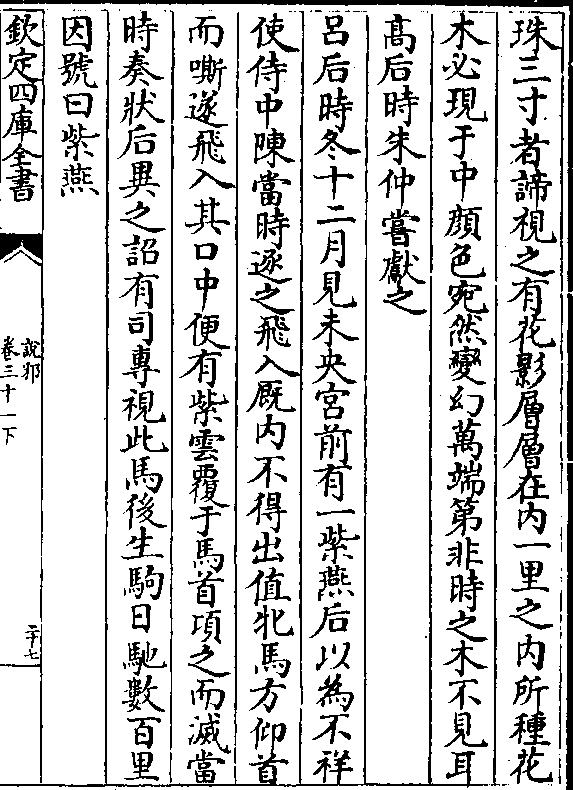 珠三寸者諦視之有花影層層在内一里之内所種花
木必現于中顔色宛然變幻萬端第非時之木不見耳
髙后時朱仲嘗獻之
吕后時冬十二月見未央宫前有一紫燕后以為不祥
使侍中陳當時逐之飛入厩内不得出值牝馬方仰首
而嘶遂飛入其口中便有紫雲覆于馬首項之而滅當
時奏狀后異之詔有司專視此馬後生駒日馳數百里
因號曰紫燕
欽定四庫全書
說郛
卷三十一下
二十七